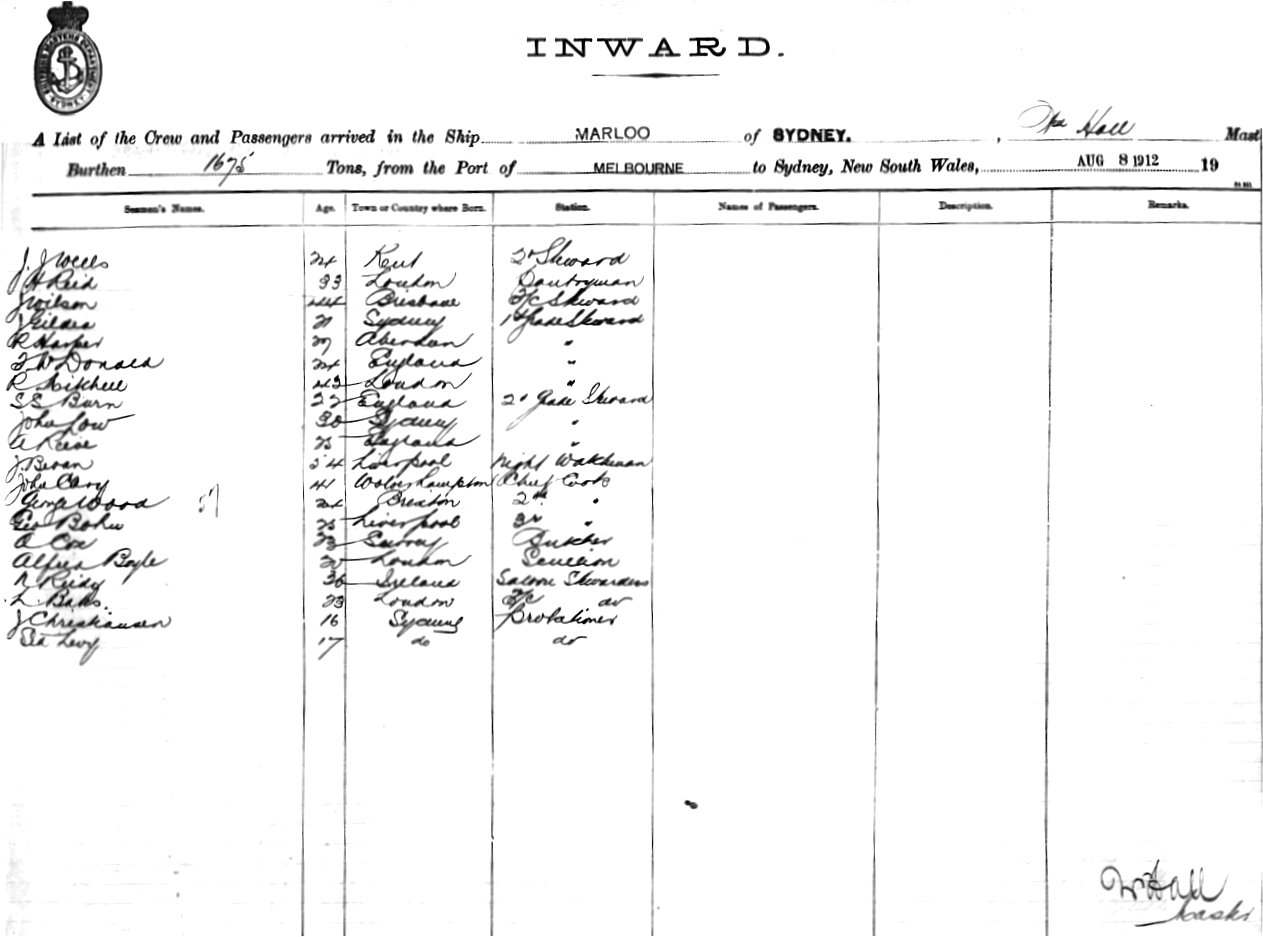 INWARD.
A List of the Crew and Passengers arrived in the Ship MARLOO of SYDNEY. , Wm Hall Mast
Burthen 1675 Tons, from the Port of MELBOURNE to Sydney, New South Wales, AUG 8 1912 19
Seamen's Names. Age. Town or Country where Born. Station. Names of Passengers. Description. Remarks.
J. J Wells 24 Kent 2d Steward
H Reid 33 London Pantryman
J Wilson 44 Brisbane F/C Steward
J Gildea 21 Sydney 1st Grade Steward
R Harper 27 Aberdeen "
W Donald 24 England "
R Mitchell 43 London "
S S Burn 22 England 2d Grade Steward
John Low 30 Sydney "
A Reeve 25 England "
J. Bevan 54 Liverpool Night Watchman
John Cary 41 Wolverhampton Chief Cook
George Wood 57 24 Brixton 2nd "
Geo 25 Liverpool 3rd "
A Cox 23 Surrey Butcher
Alfred Boyle 20 London Scullion
N Reidy 36 Ireland Saloon Stewardess
L. 33 London F/C do
J Christiansen 16 Sydney Probationer
Levy 17 do do
Wm Hall
Master